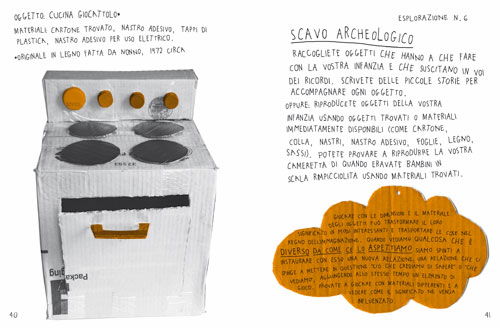 OGGETTO: CUCINA GIOCATTOLO•
MATERIALI CARTONE TROVATO, NASTRO ADESIVO, TAPPI DI
PLASTICA, NASTRO ADESIVO PER USO ELETTRICO.
•ORIGINALE IN LEGNO FATTA DA NONNO, 1972 CIRCA
Packa
40
ESPLORAZIONE N. 6
SCAVO ARCHEOLOGICO
RACCOGLIETE OGGETTI CHE HANNO A CHE FARE
CON LA VOSTRA INFANZIA E CHE SUSCITANO IN VOI
DEI RICORDI. SCRIVETE DELLE PICCOLE STORIE PER
ACCOMPAGNARE OGNI OGGETTO.
OPPURE: RIPRODUCETE OGGETTI DELLA VOSTRA
INFANZIA USANDO OGGETTI TROVATI O MATERIALI
IMMEDIATAMENTE DISPONIBILI (COME CARTONE,
COLLA, NASTRI, NASTRO ADESIVO, FOGLIE, LEGNO,
SASSI). POTETE PROVARE A RIPRODURRE LA VOSTRA
CAMERETTA DI QUANDO ERAVATE BAMBINI IN
SCALA RIMPICCIOLITA USANDO MATERIALI TROVATI.
GIOCARE CON LE DIMENSIONI E IL MATERIALE
DEGLI OGGETTI PUÒ TRASFORMARE IL LORO
SIGNIFICATO IN MODI INTERESSANTI E TRASPORTARE LE COSE NEL
REGNO DELL'IMMAGINAZIONE. QUANDO VEDIAMO QUALCOSA CHE È
DIVERSO DA COME CE LO ASPETTIAMO, SIAMO SPINTI A
INSTAURARE CON ESSO UNA NUOVA RELAZIONE, UNA RELAZIONE CHE CI
SPINGE A METTERE IN QUESTIONE CIÒ CHE CREDIAMO DI SAPERE O CHE
VEDIAMO, AGGIUNGENDO ALLO STESSO TEMPO UN ELEMENTO DI
GIOCO. PROVATE A GIOCARE CON MATERIALI DIFFERENTI E A
VEDERE COME IL SIGNIFICATO NE VENGA
INFLUENZATO.
41